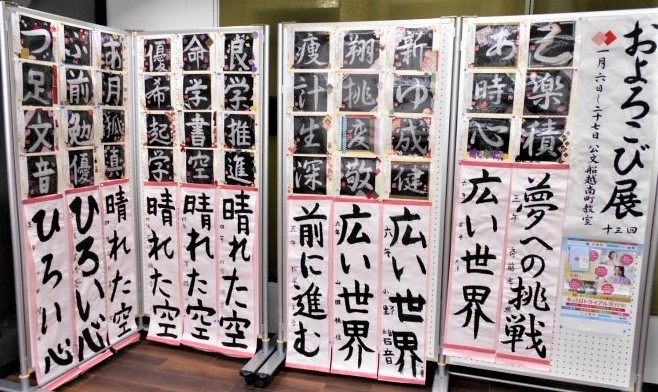 およろこび展
十三回
一月六日〜二十七日 公文船越南町教室
楽
積
あ
時
心
夢への挑戦
三年
広い世界
新
ゆ
成
健
翔
挑
変
敬
痩
計
生
深
広い世界
六年
広い世界
六年
前に進む
五年
良
学
推
進
命
字
書
空
優
希
起
学
晴れた空
晴れた空
晴れた空
あ
月
孤
真
ふ
前
勉
優
つ
足
文
音
晴れた空
ひろい心
ひろい心